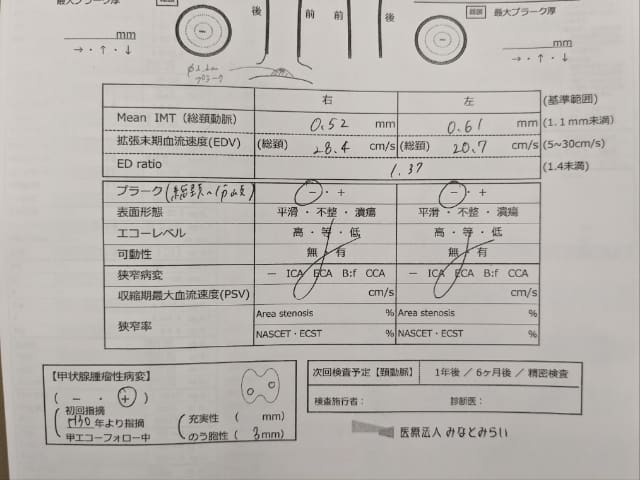 最大プラーク厚
後 前 前 後
最大プラーク厚
mm
mm
→・↑・↓
→・↑・↓
プラーク
右 左 (基準範囲)
Mean IMT（総頸動脈） 0.52 mm 0.61 mm (1.1mm未満)
拡張末期血流速度(EDV) (総頸) 28.4 cm/s (総頸) 20.7 cm/s (5~30cm/s)
ED ratio 1.37 (1.4未満)
プラーク －・＋ －・＋
表面形態 平滑・不整・潰瘍 平滑・不整・潰瘍
エコーレベル 高・等・低 高・等・低
可動性 無・有 無・有
狭窄病変 － ICA ECA B:f CCA － ICA ECA B:f CCA
収縮期最大血流速度(PSV) cm/s cm/s
狭窄率 Area stenosis % Area stenosis %
NASCET・ECST % NASCET・ECST %
【甲状腺腫瘤性病変】
( － ・ ＋ )
初回指摘
H30年より指摘
甲エコーフォロー中
充実性 ( mm)
のう胞性 ( 3mm)
次回検査予定【頸動脈】 1年後 ／ 6ヶ月後 ／ 精密検査
検査施行者： 診断医：
医療法人 みなとみらい